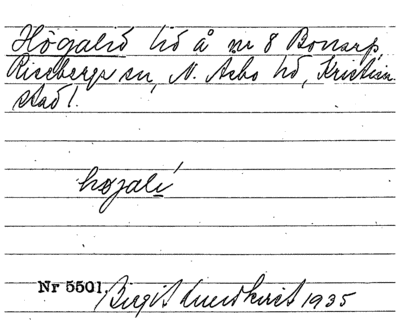 Högalid hd å nr 8 Bonarp,
Riseberga sn, N. Åsbo hd, Kristian-
stad l.
høgalí
Nr 5501. Birgit Lundkvist 1935